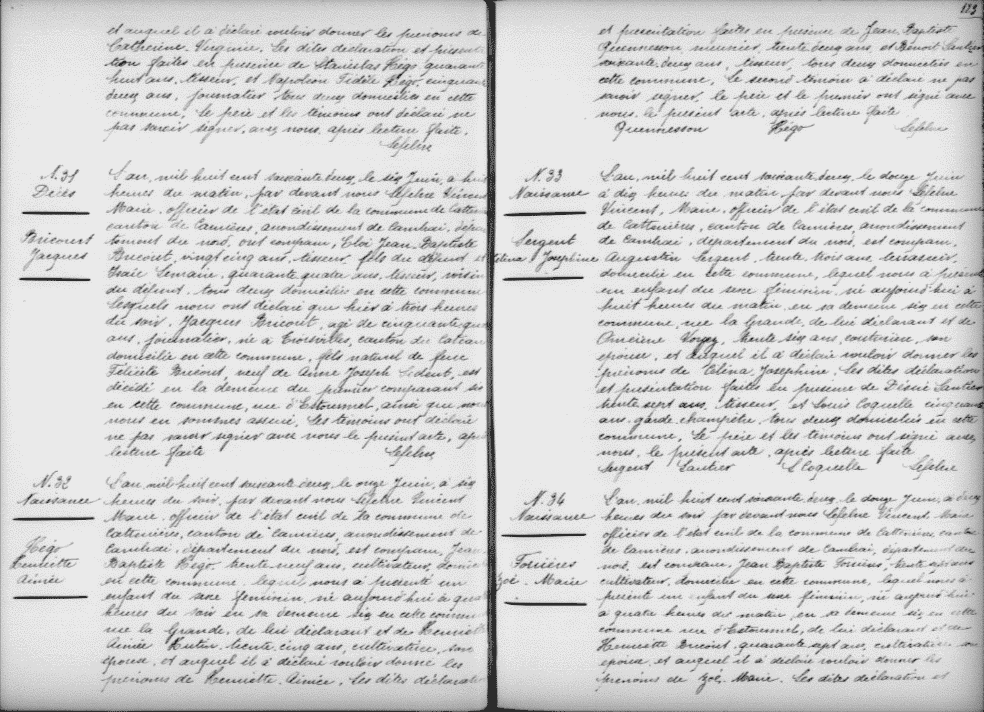 et auquel il a déclaré vouloir donner les prénoms de
Catherine Virginie. Les dites déclaration et présenta
tion faites en présence de Stanislas Hégo quarante
huit ans, tisseur, et Napoléon Fidèle Hégo, cinquante
deux ans, journalier tous deux domiciliés en cette
commune. Le père et les témoins ont déclaré ne
pas savoir signer, avec nous, après lecture faite.
Lefebre
N. 31
Décès
Bricourt
Jacques
L'an, mil huit cent soixante douze, le six Juin, à huit
heures du matin, par devant nous Lefebre Vincent
Maire, officier de l'état civil de la commune de Catteni
canton de Carnières, arrondissement de Cambrai, dépar
tement du nord, ont comparu, Eloi Jean-Baptiste
Bricout, vingt cinq ans, tisseur, fils du défunt et
Isaïe Lemain, quarante quatre ans, tisseur, voisin
du défunt, tous deux domiciliés en cette commune
lesquels nous ont déclaré que hier à trois heures
du soir, Jacques Bricout, agé de cinquante
ans, journalier, né à Troisvilles, canton du Cateau
domicilié en cette commune, fils naturel de feue
Félicité Bricout, veuf de Anne Joseph, est
décédé en la demeure du premier comparant sis
en cette commune, rue d'Estourmel, ainsi que nous
nous en sommes assuré. Les témoins ont déclaré
ne pas savoir signer avec nous le présent acte, après
lecture faite
Lefebre
N. 32
Naissance
Hégo
Henriette
Aimée
L'an, mil huit cent soixante douze, le onze Juin, à six
heures du soir, par devant nous Lefebre Vincent
Maire, officier de l'état civil de la commune de
Cattenières, canton de Carnières, arrondissement de
Cambrai, département du nord, est comparu, Jean
Baptiste Hégo, trente neuf ans, cultivateur, domicilié
en cette commune, lequel nous a présenté un
enfant du sexe féminin, né aujourd'hui à quatre
heures du soir en sa demeure sis en cette commune
rue la Grande, de lui déclarant et de Henriette
Aimée Hutin, trente cinq ans, cultivatrice, son
épouse, et auquel il a déclaré vouloir donner les
prénoms de Henriette Aimée. Les dites déclaration
123
et présentation faites en présence de Jean Baptiste
Quennesson, meunier, trente cinq ans, et Benoit Lantier
soixante deux ans, tisseur, tous deux domiciliés en
cette commune. Le second témoin a déclaré ne pas
savoir signer, le père et le premier ont signé avec
nous, le présent acte, après lecture faite.
Quennesson Hégo Lefebre
N. 33
Naissance
Sergent
Célina Joséphine
L'an, mil huit cent soixante douze, le douze Juin
à dix heures du matin par devant nous Lefebre
Vincent, Maire, officier de l'état civil de la commune
de Cattenières, canton de Carnières, arrondissement
de Cambrai, département du nord, est comparu,
Augustin Sergent, trente trois ans, terrassier,
domicilié en cette commune, lequel nous a présenté
un enfant du sexe féminin, né aujourd'hui à
huit heures du matin, en sa demeure sis en cette
commune, rue la Grande, de lui déclarant et de
trente six ans, couturière, son
épouse, et auquel il a déclaré vouloir donner les
prénoms de Célina Joséphine. Les dites déclaration
et présentation faites en présence de Désiré Lantier
trente sept ans, tisseur, et Louis Coquelle cinquante
ans, garde champêtre, tous deux domiciliés en cette
commune. Le père et les témoins ont signé avec
nous, le présent acte, après lecture faite
Sergent Lantier L Coquelle Lefebre
N. 34
Naissance
Forrières
Zoé Marie
L'an, mil huit cent soixante douze, le douze Juin, à cinq
heures du soir par devant nous Lefebre Vincent Maire
officier de l'état civil de la commune de Cattenières, canton
de Carnières, arrondissement de Cambrai, département du
nord, est comparu, Jean Baptiste Forrières, trente sept ans
cultivateur, domicilié en cette commune, lequel nous a
présenté un enfant du sexe féminin, né aujourd'hui
à quatre heures du matin, en sa demeure sis en cette
commune rue d'Estourmel, de lui déclarant et de
Henriette Bricout, quarante sept ans, cultivatrice son
épouse, et auquel il a déclaré vouloir donner les
prénoms de Zoé Marie. Les dites déclaration et